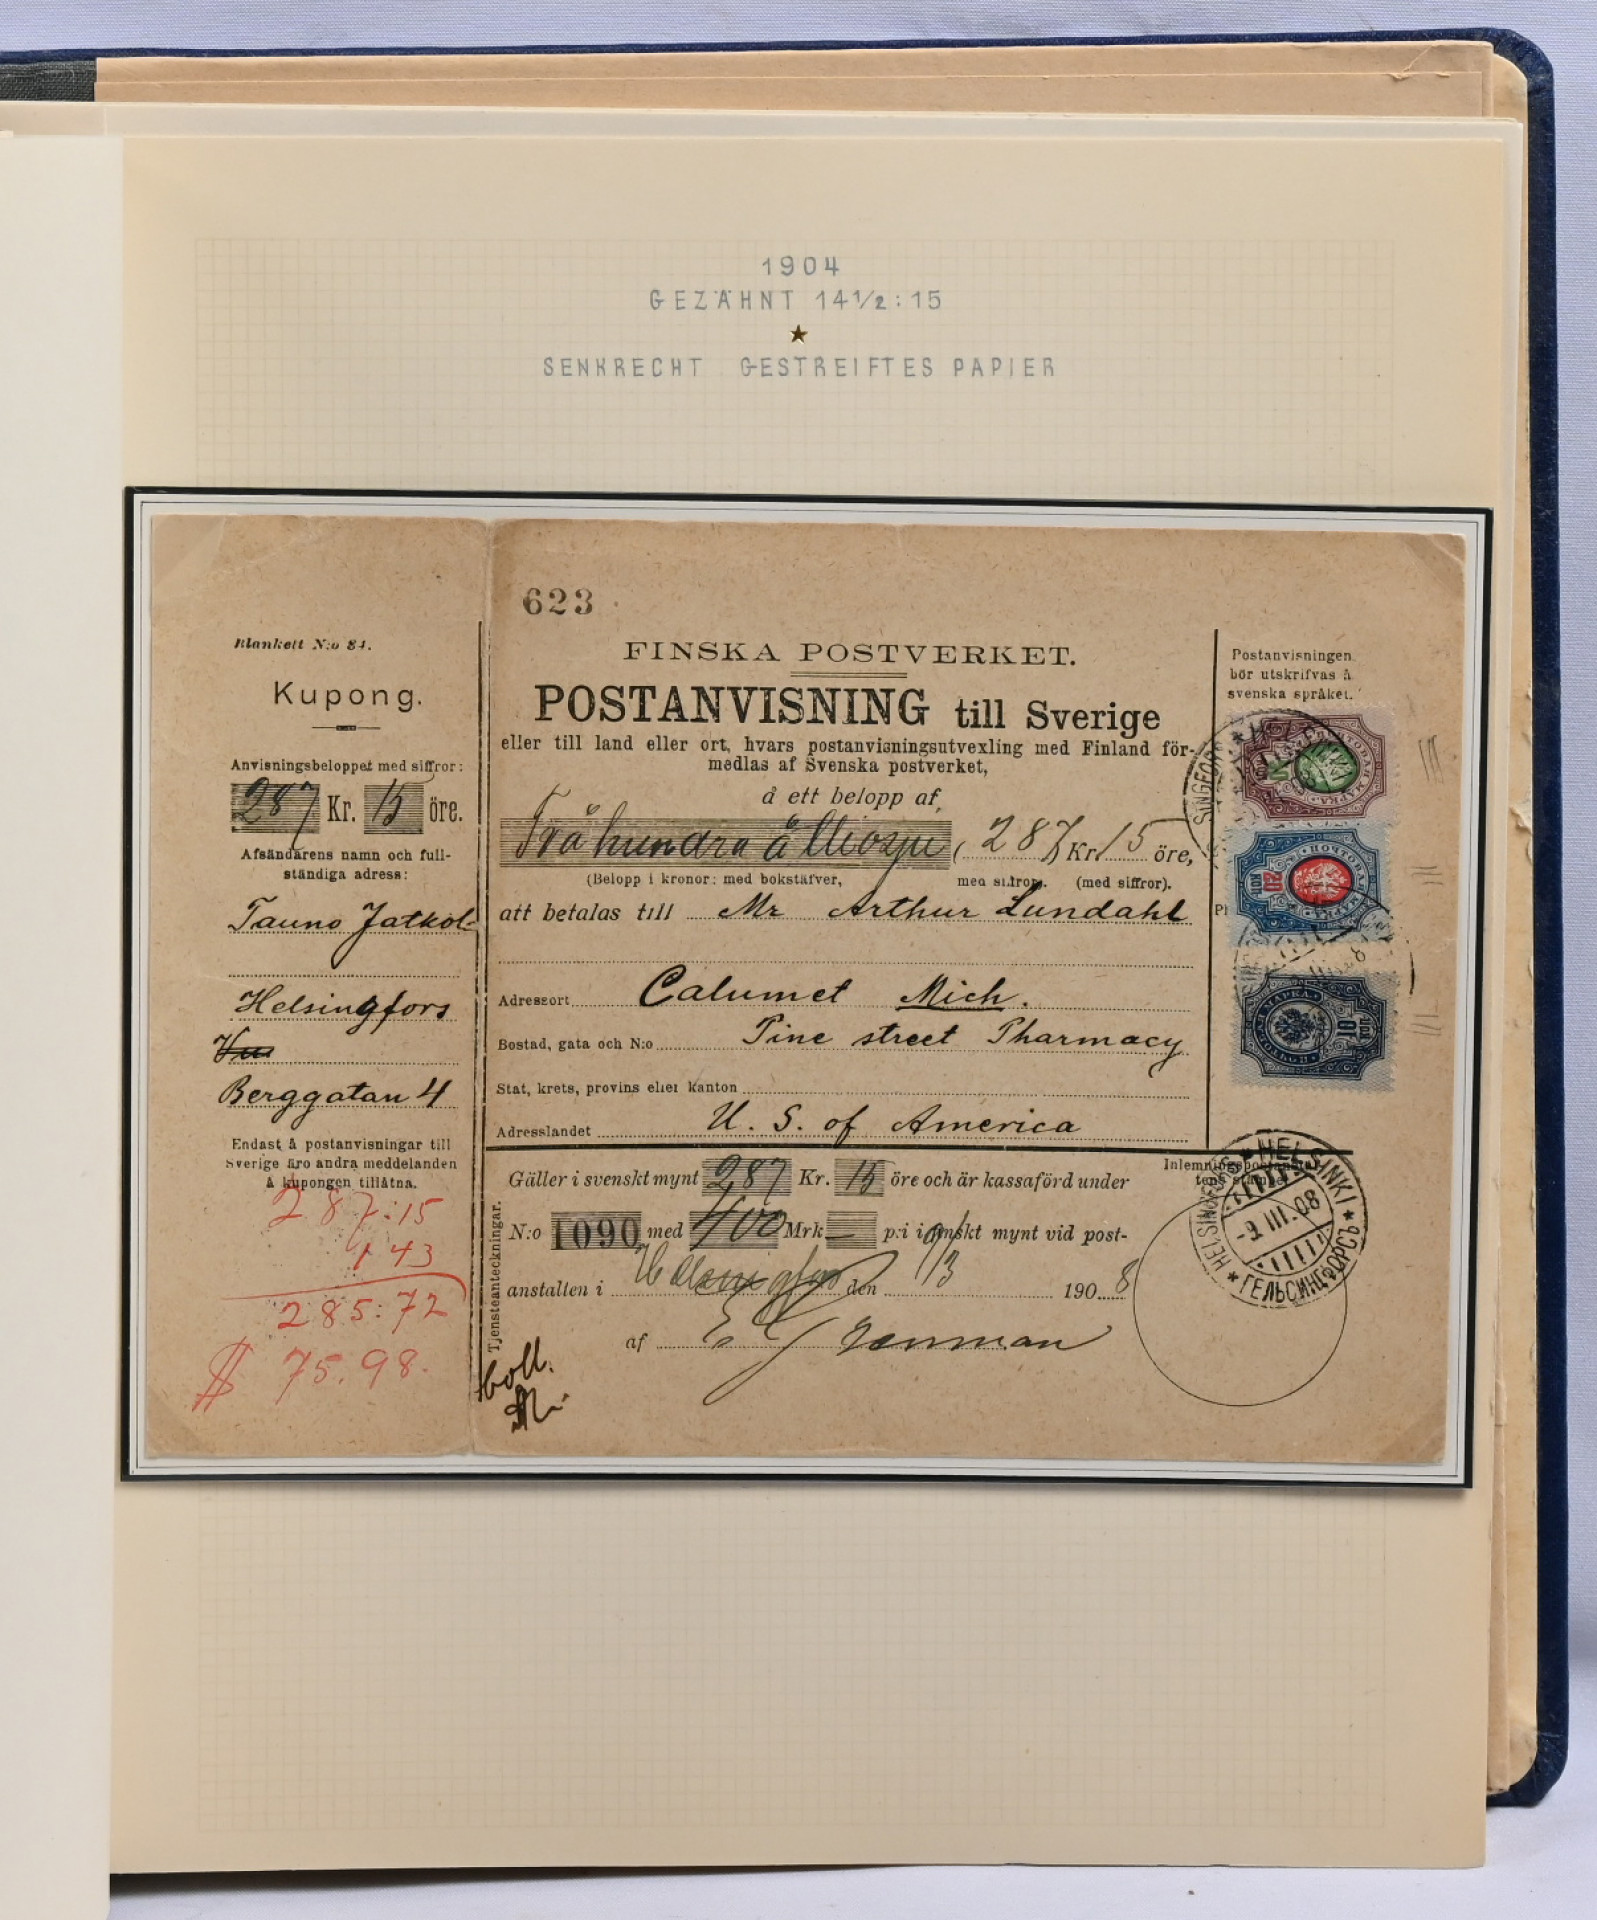 1904
GEZÄHNT 14½:15
SENKRECHT GESTREIFTES PAPIER
623
Blankett N:o 84.
Kupong.
Anvisningsbeloppet med siffror:
287 Kr. 15 öre.
Afsändarens namn och full-
ständiga adress:
Tauno Jatkol
Helsingfors
Berggatan 4
Endast å postanvisningar till
Sverige äro andra meddelanden
å kupongen tillåtna.
287:15
1 43
285:72
$ 75.98.
FINSKA POSTVERKET.
POSTANVISNING till Sverige
eller till land eller ort, hvars postanvisningsutvexling med Finland för-
medlas af Svenska postverket,
å ett belopp af
Två hundra å (287) Kr 15 öre,
(Belopp i kronor: med bokstäfver, med siffror. (med siffror).
att betalas till Mr Arthur Lundahl
Adressort Calumet Mich.
Bostad, gata och N:o Pine street Pharmacy
Stat, krets, provins eller kanton
Adresslandet U. S. of America
Tjensteanteckningar.
Gäller i svenskt mynt 287 Kr. 15 öre och är kassaförd under
N:o 1090 med 400 Mrk — p:i i finskt mynt vid post-
anstalten i Helsingfors den 9/3 1908
af
coll.
Postanvisningen
bör utskrifvas å
svenska språket.
ПОЧТОВАЯ МАРКА
20 КОП
ПОЧТОВАЯ МАРКА
10 КОП
Inlemningspostanstal-
tens stämpel
HELSINGFORS * HELSINKI * ГЕЛЬСИНГФОРСЪ
-9.III.08